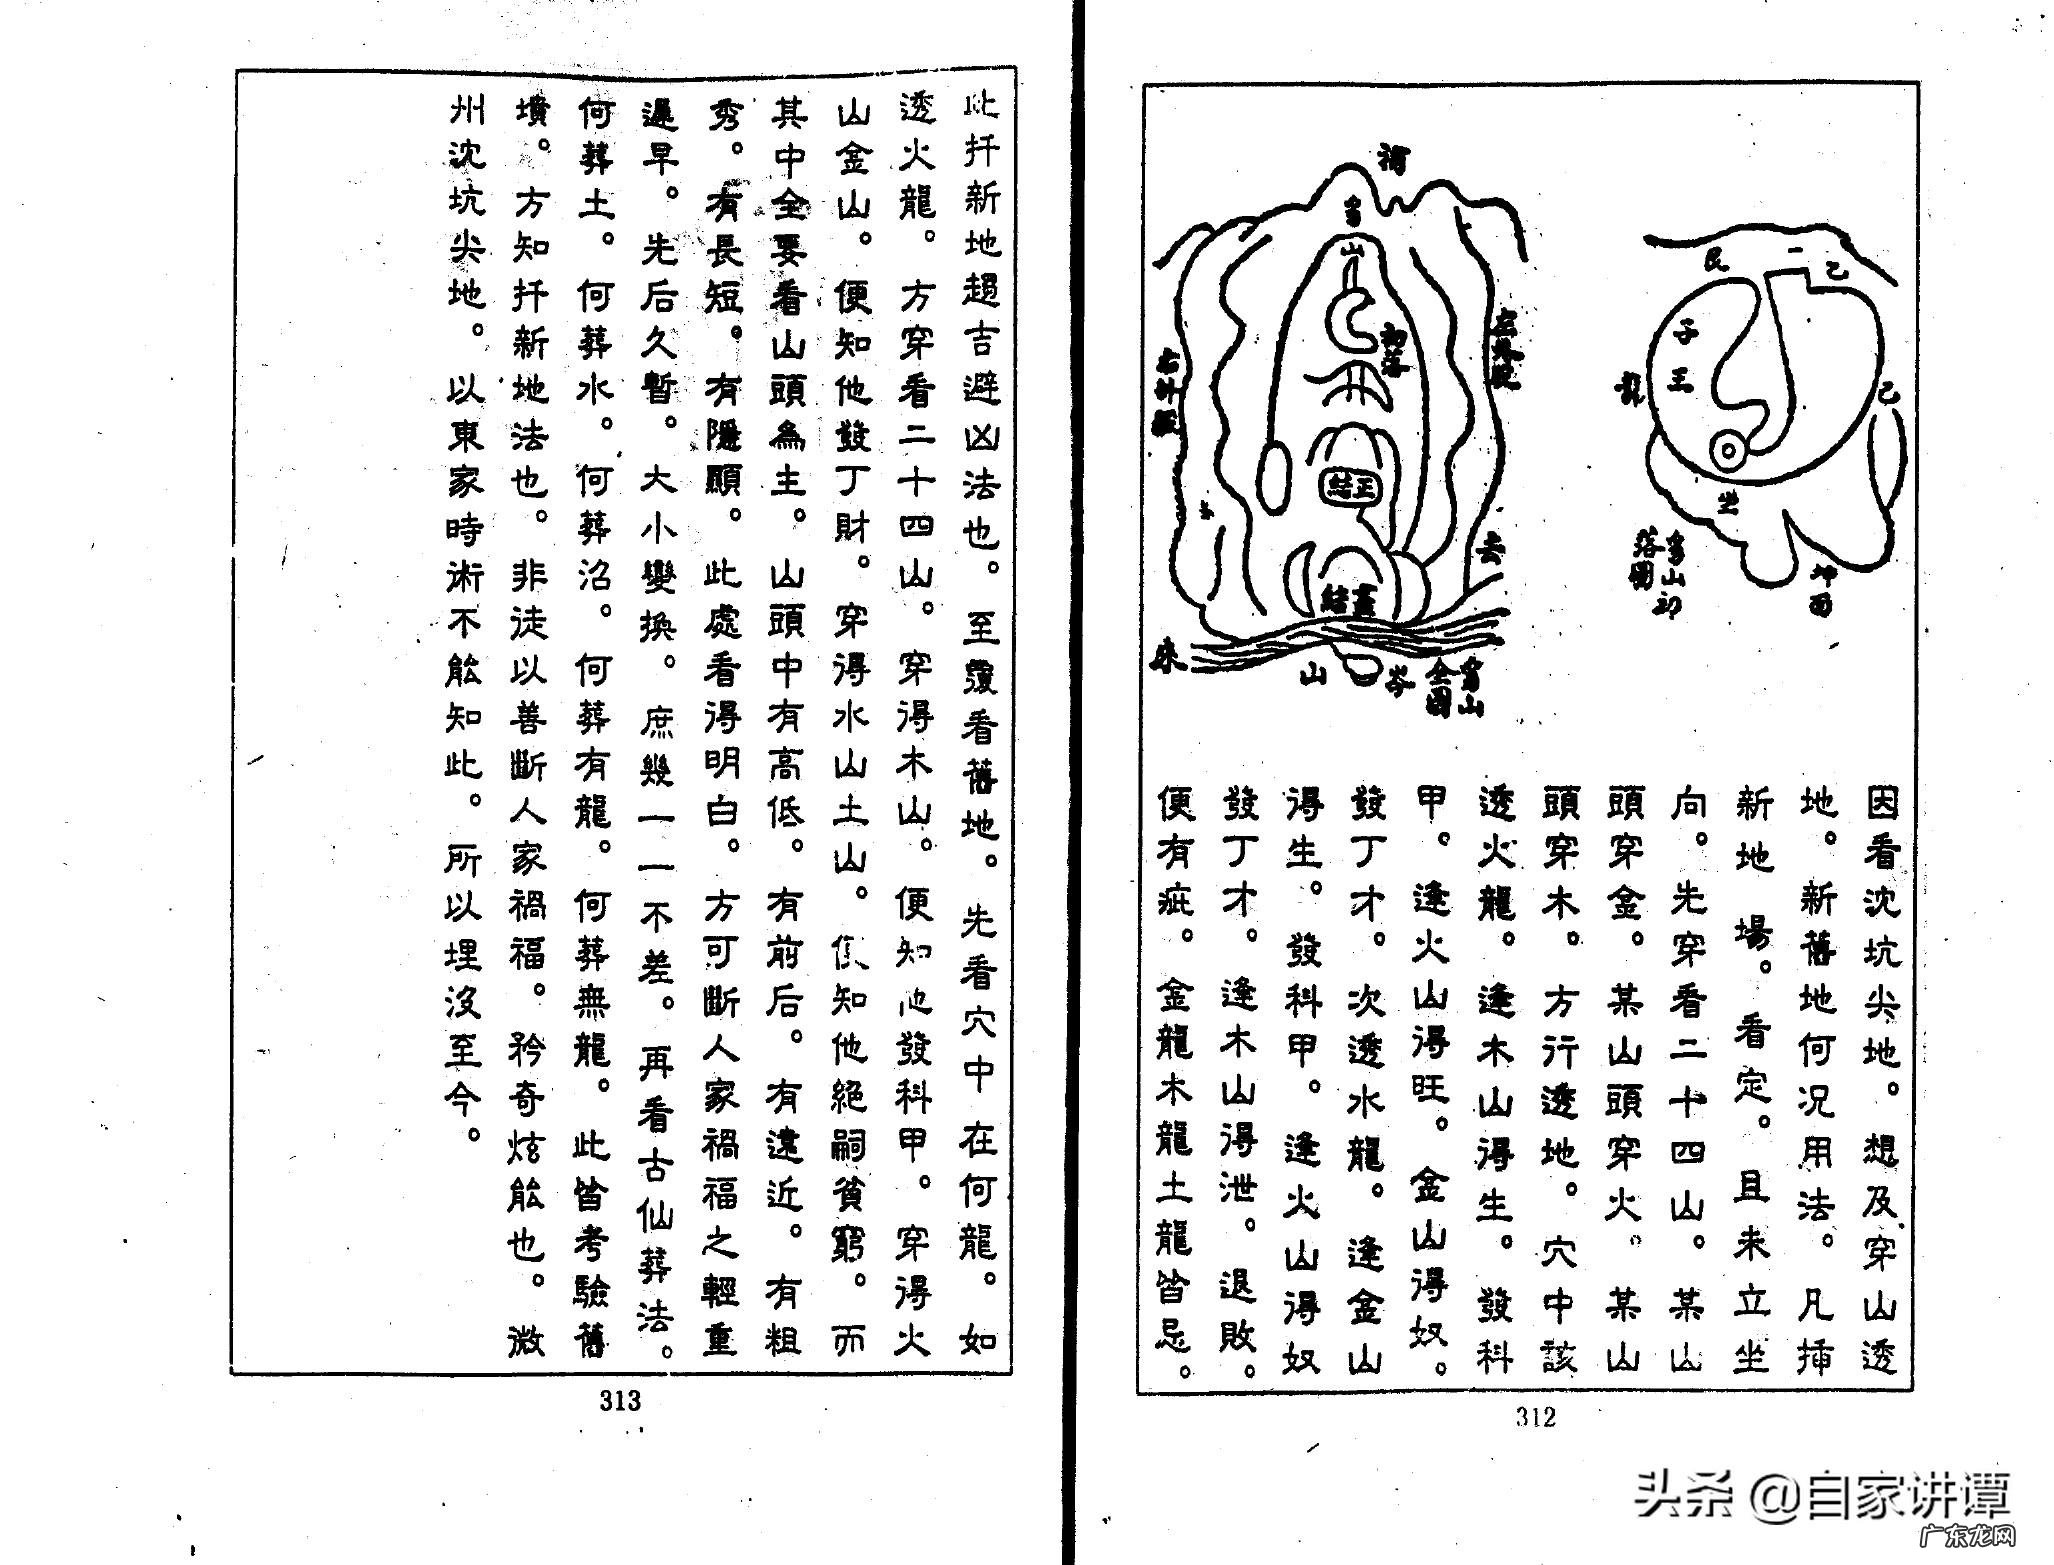 艮
乙
子
王
龍
己
坐
坤
面
山初
落圖
初落
正結
盡結
去
来
山
岑
山
全圖
因看沈坑尖地。想及穿山透
地。新舊地何况用法。凡揷
新地塲。看定。且未立坐
向。先穿看二十四山。某山
頭穿金。某山頭穿火。某山
頭穿木。方行透地。穴中該
透火龍。逢木山得生。發科
甲。逢火山得旺。金山得奴。
發丁才。次透水龍。逢金山
得生。發科甲。逢火山得奴
發丁才。逢木山得泄。退敗。
便有疵。金龍木龍土龍皆忌。
312
此扦新地趨吉避凶法也。至覆看舊地。先看穴中在何龍。如
透火龍。方穿看二十四山。穿得木山。便知他發科甲。穿得火
山金山。便知他發丁財。穿得水山土山。便知他絕嗣貧窮。而
其中全要看山頭為主。山頭中有高低。有前后。有遠近。有粗
秀。有長短。有隱顯。此處看得明白。方可斷人家禍福之輕重
遲早。先后久暫。大小變換。庶幾一一不差。再看古仙葬法。
何葬土。何葬水。何葬沿。何葬有龍。何葬無龍。此皆考驗舊
墳。方知扦新地法也。非徒以善斷人家禍福。矜奇炫能也。微
州沈坑尖地。以東家時術不能知此。所以埋沒至今。
313
头条 @自家讲谭
广东龙网